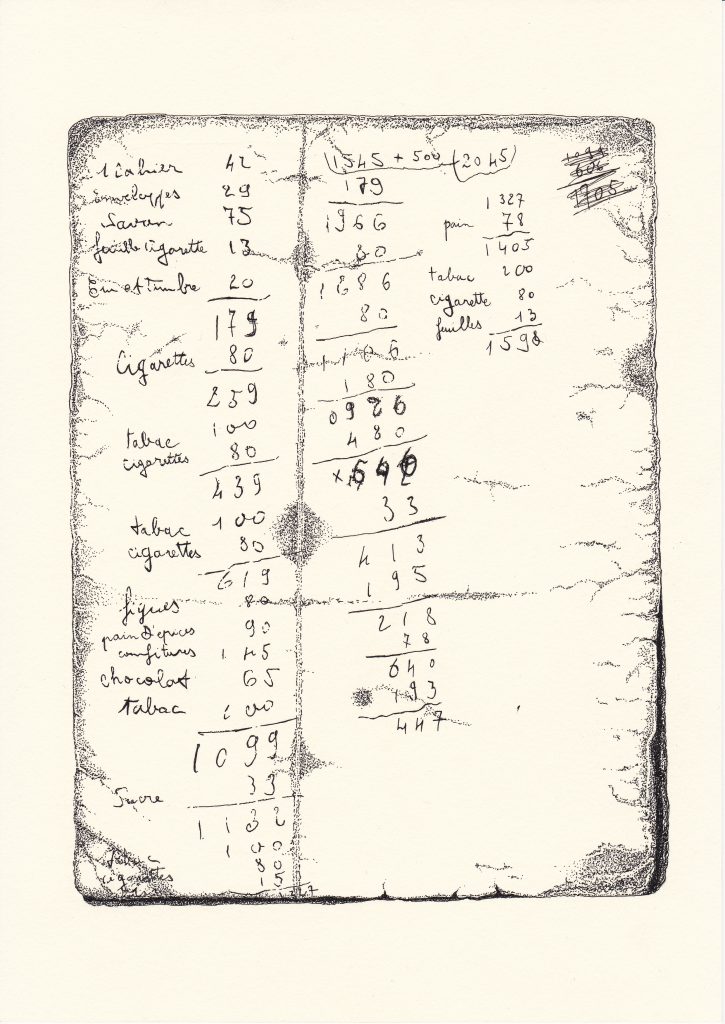 1 Cahier 42
Enveloppes 29
Savon 75
feuille cigarette 13
En et Timbre 20
179
Cigarettes 80
259
tabac 100
cigarettes 80
439
tabac 100
cigarettes 80
619
figues 80
pain d'epices 90
confitures 1 45
chocolat 65
tabac 100
1099
Sucre 33
1132
tabac 100
cigarettes 80
15
1327
(1545 + 500 (2045)
179
1966
80
1886
80
1106
180
0926
480
33
413
195
218
78
640
193
447
1905
1327
pain 78
1405
tabac 200
cigarette 80
feuilles 13
1598